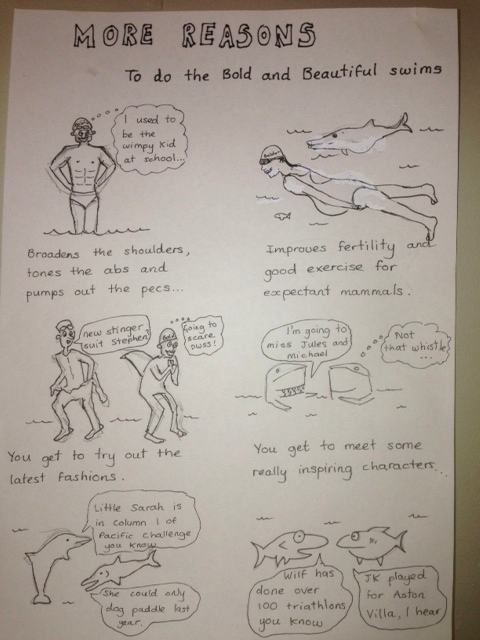 MORE REASONS
To do the Bold and Beautiful swims
I used to
be the
wimpy kid
at school...
Broadens the shoulders,
tones the abs and
pumps out the pecs...
Improves fertility and
good exercise for
expectant mammals.
new stinger
suit Stephen?
Going to
scare
Puss!
You get to try out the
latest fashions.
I'm going to
miss Jules and
Michael
Not
that whistle
...
You get to meet some
really inspiring characters...
Little Sarah is
in column 1 of
Pacific Challenge
you know
She could only
dog paddle last
year.
Wilf has
done over
100 triathlons
you know
JK played
for Aston
Villa, I hear